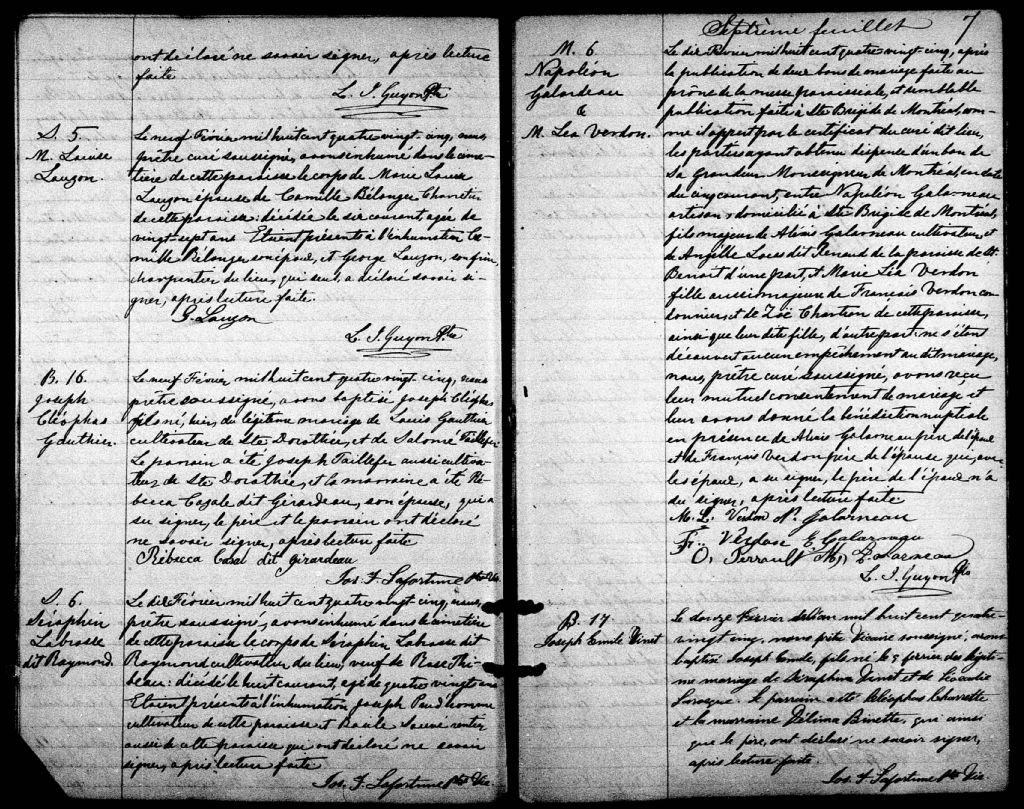 ont déclaré ne savoir signer, après lecture
faite
L. J. Guyon Ptre
S. 5
M. Louise
Lauzon.
Le neuf Février mil huit cent quatre vingt-cinq, nous
prêtre curé soussigné, avons inhumé dans le cime-
tière de cette paroisse le corps de Marie Louise
Lauzon épouse de Camille Bélanger Charretier
de cette paroisse: décédée le six courant, agée de
vingt-sept ans Etaient présents à l'inhumation Ca-
mille Bélanger son époux, et George Lauzon, son frère,
charpentier du lieu, qui seul, a déclaré savoir si-
gner, après lecture faite.
G. Lauzon
L. J. Guyon Ptre
B. 16.
Joseph
Cléophas
Gauthier.
Le neuf Février mil huit cent quatre vingt cinq, nous
prêtre soussigné, avons baptisé Joseph Cléophas
fils né, hier, du légitime mariage de Louis Gauthier
cultivateur de Ste Dorothée, et de Salomé Taillefer
Le parrain a été Joseph Taillefer aussi cultiva-
teur de Ste Dorothée, et la marraine a été Ré-
becca Cazale dit Girardeau, son épouse, qui a
su signer, le père et le parrain ont déclaré
ne savoir signer, après lecture faite
Rébecca Casal dit girardeau
Jos. F. Lafortune Ptre Vic.
S. 6.
Séraphin
Labrosse
dit Raymond.
Le dix Février mil huit cent quatre vingt-cinq, nous,
prêtre soussigné, avons inhumé dans le cimetière
de cette paroisse le corps de Séraphin Labrosse dit
Raymond cultivateur du lieu, veuf de Rose Thi-
beau: décédé le huit courant, agé de quatre vingt ans
Etaient présents à l'inhumation Joseph Prud'homme
cultivateur de cette paroisse et Sauvé rentier
aussi de cette paroisse qui ont déclaré ne savoir
signer, après lecture faite
Jos. F. Lafortune Ptre Vic
Septième feuillet 7
M. 6
Napoléon
Galardeau
&
M. Léa Verdon.
Le dix Février mil huit cent quatre vingt-cinq, après
la publication de deux bans de mariage faite au
prône de la messe paroissiale, et semblable
publication faite à Ste Brigide de Montréal, com-
me il appert par le certificat du curé dit lieu,
les parties ayant obtenu dispense d'un ban de
Sa Grandeur Monseigneur de Montréal, en date
du cinq courant, entre Napoléon Galarneau
artisan, domicilié à Ste Brigide de Montréal,
fils majeur de Alexis Galarneau cultivateur, et
de Angèle dit Renaud de la paroisse de St.
Benoit d'une part, et Marie Léa Verdon
fille aussi majeure de François Verdon cor-
donnier, et de Zoé Chartion de cette paroisse,
ainsi que leur dite fille, d'autre part: ne s'étant
découvert aucun empêchement au dit mariage,
nous, prêtre curé soussigné, avons reçu
leur mutuel consentement de mariage et
leur avons donné la bénédiction nuptiale
en présence de Alexis Galarneau père de l'époux
et de François Verdon père de l'épouse qui, avec
les époux, a su signer, le père de l'époux n'a
su signer, après lecture faite
M. L. Verdon N. Galarneau
Fr. Verdon E Galarneau
O. Perrault M. Galarneau
L. J. Guyon Ptre
B. 17
Joseph Emile Vinet
Le douze Février mil huit cent quatre
vingt cinq, nous prêtre vicaire soussigné, avons
baptisé Joseph Emile, fils né le 9 février du légiti-
me mariage de Séraphin Vinet et de Léocadie
Larocque. Le parrain a été Cléophas Charette
et la marraine Délima Binette, qui ainsi
que le père, ont déclaré ne savoir signer,
après lecture faite.
Jos. F. Lafortune Ptre Vic